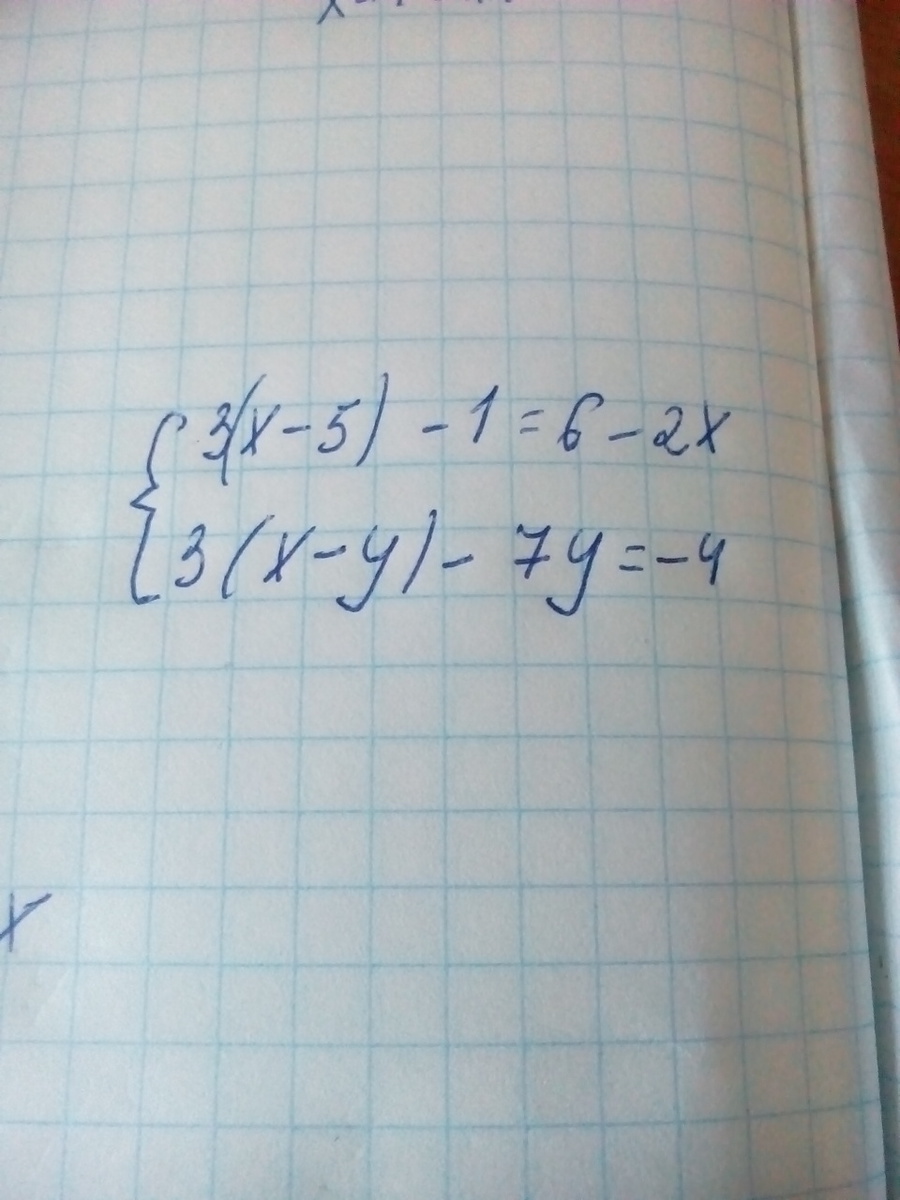 3(x-5) -1=6-2x
3(x-y)- 7y=-4
x